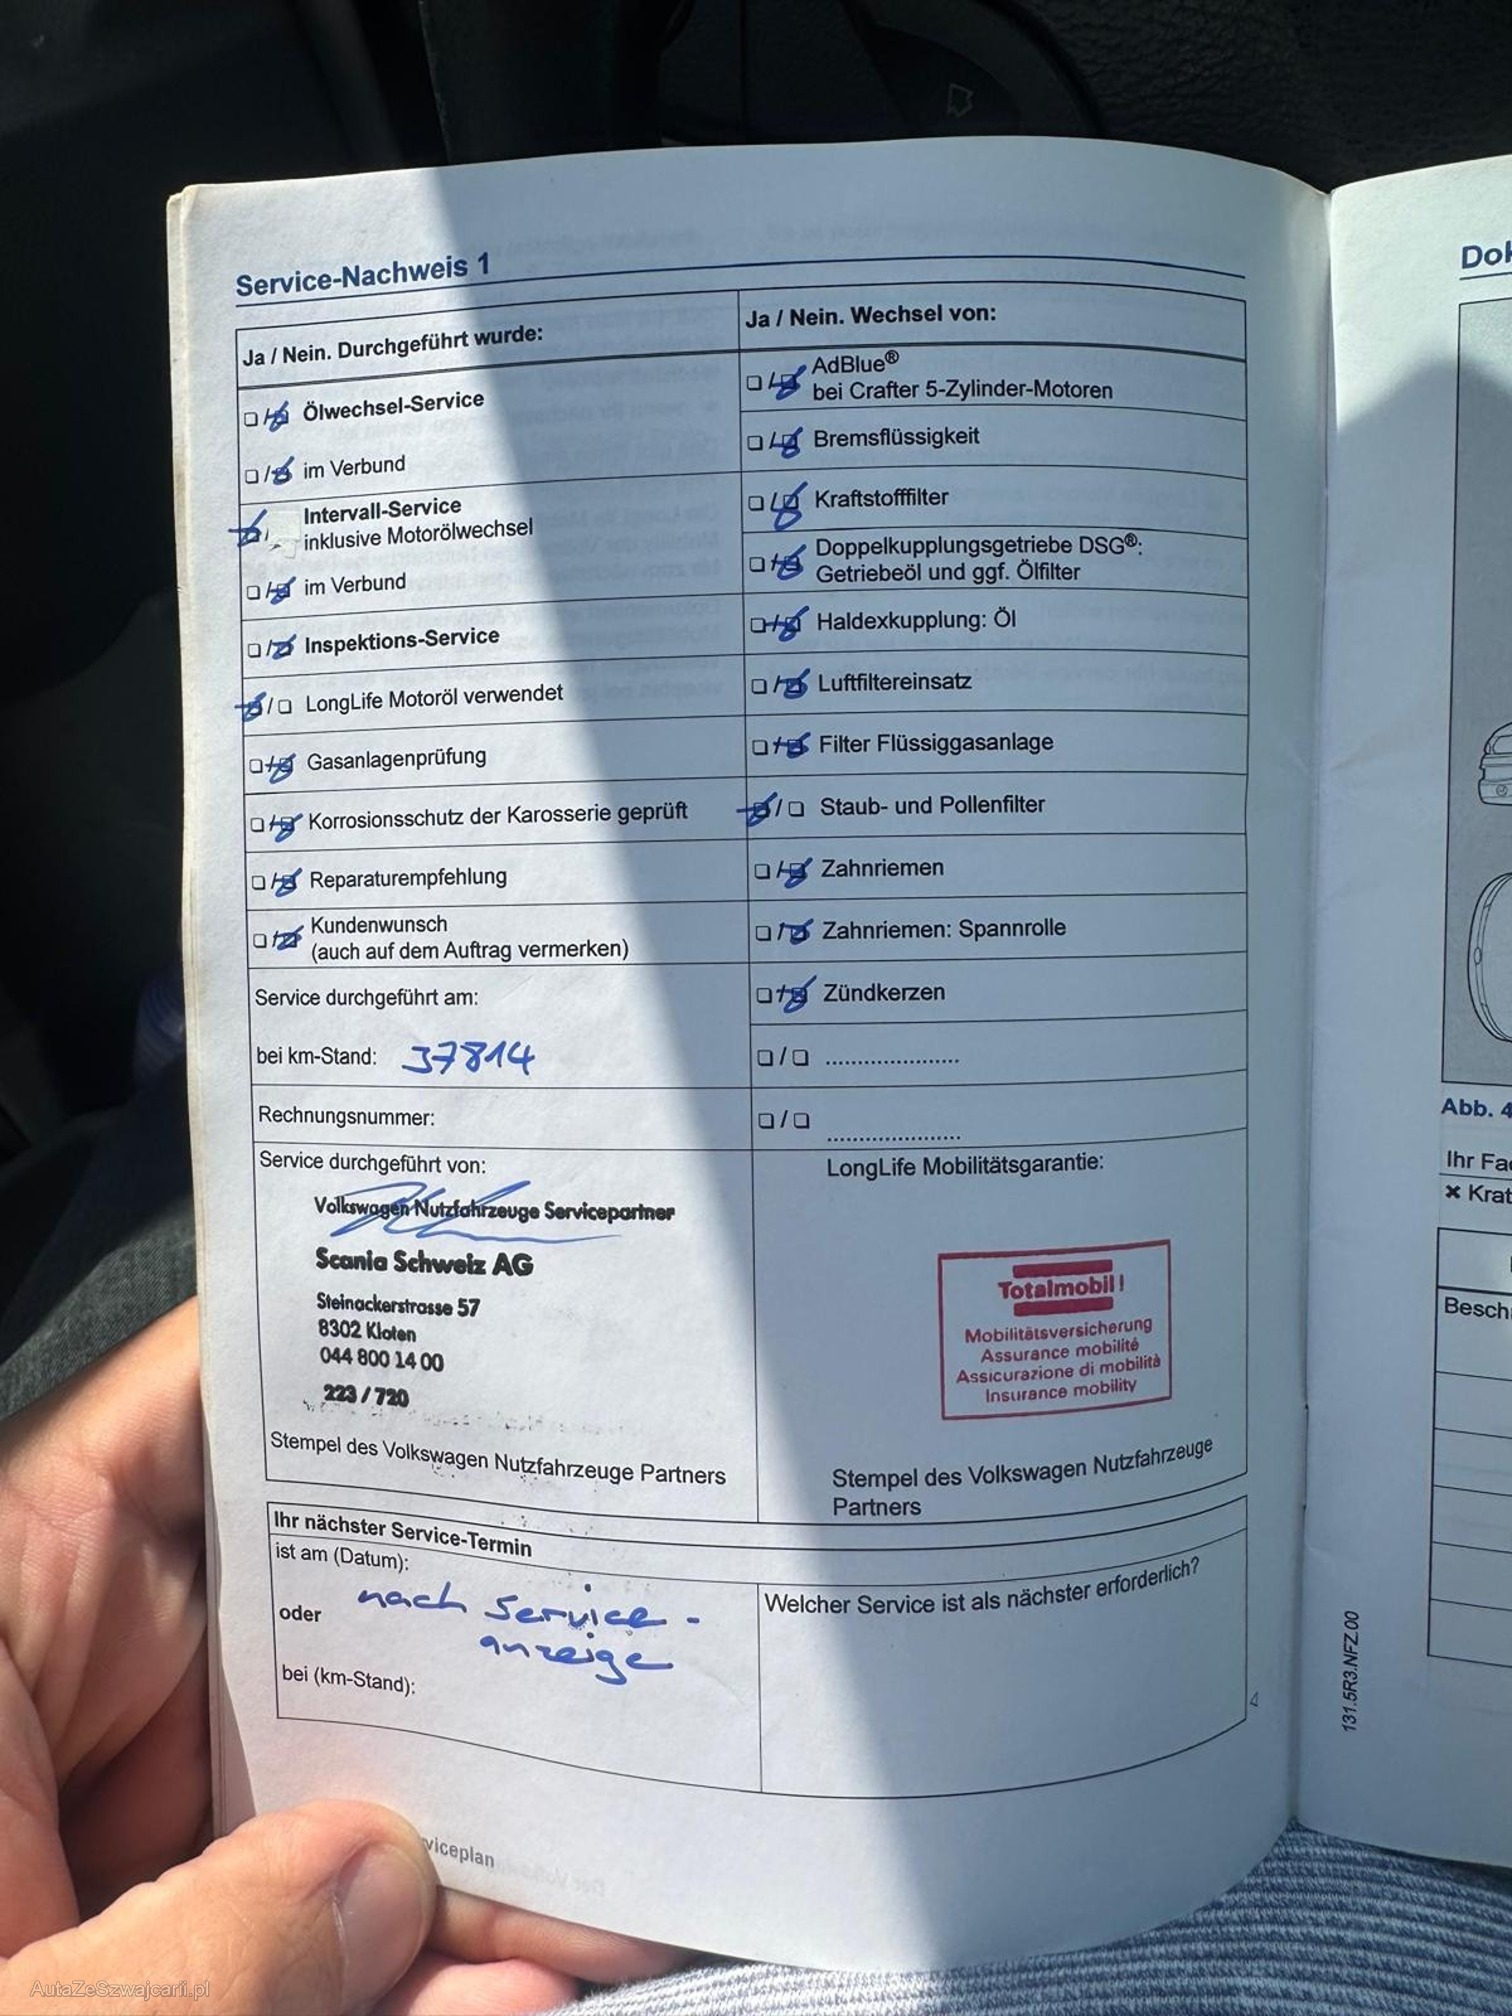 Service-Nachweis 1
Ja / Nein. Durchgeführt wurde:
Ölwechsel-Service
im Verbund
Intervall-Service
inklusive Motorölwechsel
im Verbund
Inspektions-Service
LongLife Motoröl verwendet
Gasanlagenprüfung
Korrosionsschutz der Karosserie geprüft
Reparaturempfehlung
Kundenwunsch
(auch auf dem Auftrag vermerken)
Service durchgeführt am:
bei km-Stand: 37814
Rechnungsnummer:
Service durchgeführt von:
Volkswagen Nutzfahrzeuge Servicepartner
Scania Schweiz AG
Steinackerstrasse 57
8302 Kloten
044 800 14 00
223 / 720
Stempel des Volkswagen Nutzfahrzeuge Partners
Ja / Nein. Wechsel von:
AdBlue®
bei Crafter 5-Zylinder-Motoren
Bremsflüssigkeit
Kraftstofffilter
Doppelkupplungsgetriebe DSG®:
Getriebeöl und ggf. Ölfilter
Haldexkupplung: Öl
Luftfiltereinsatz
Filter Flüssiggasanlage
Staub- und Pollenfilter
Zahnriemen
Zahnriemen: Spannrolle
Zündkerzen
LongLife Mobilitätsgarantie:
Totalmobil!
Mobilitätsversicherung
Assurance mobilité
Assicurazione di mobilità
Insurance mobility
Stempel des Volkswagen Nutzfahrzeuge
Partners
Ihr nächster Service-Termin
ist am (Datum):
nach Service-
oder
anzeige
bei (km-Stand):
Welcher Service ist als nächster erforderlich?
131.5R3.NFZ.00
viceplan
Abb. 4
Ihr Fa
Krat
Besch
AutaZeSzwajcarii.pl